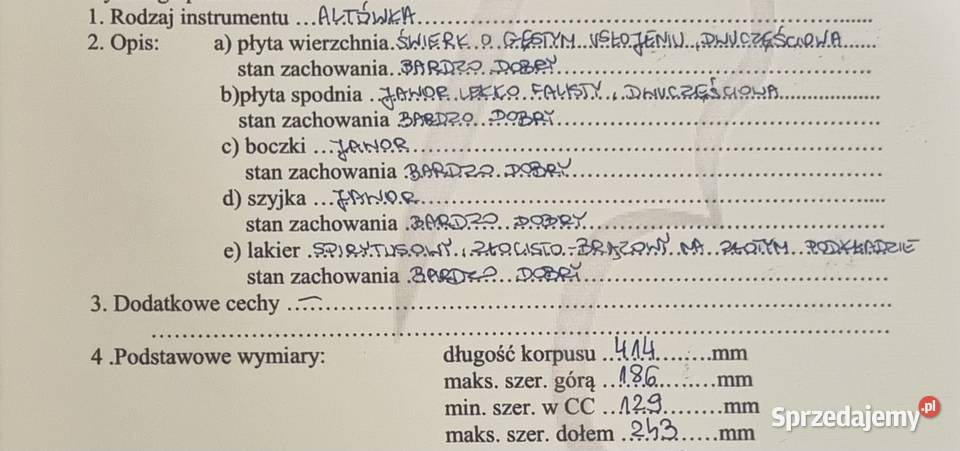 1. Rodzaj instrumentu ...ALTÓWKA...
2. Opis: a) płyta wierzchnia. ŚWIERK O GĘSTYM USŁOJENIU, DWUCZĘŚCIOWA
stan zachowania.. BARDZO DOBRY
b)płyta spodnia .. JAWOR LEKKO FALISTY, DWUCZĘŚCIOWA
stan zachowania BARDZO DOBRY
c) boczki ... JAWOR
stan zachowania . BARDZO DOBRY
d) szyjka ... JAWOR
stan zachowania . BARDZO DOBRY
e) lakier . SPIRYTUSOWY, ZŁOCISTO-BRĄZOWY NA ZŁOTYM PODKŁADZIE
stan zachowania . BARDZO DOBRY
3. Dodatkowe cechy ... —
4 .Podstawowe wymiary: długość korpusu ..414...mm
maks. szer. górą ..186...mm
min. szer. w CC ..129...mm
maks. szer. dołem ..243...mm
Sprzedajemy.pl